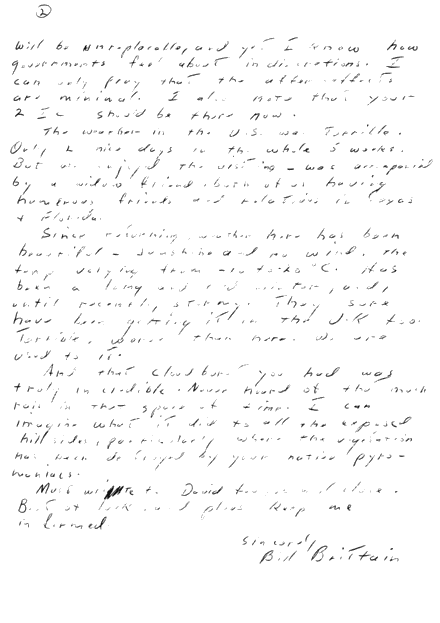 2
will be unreplacable, and yet I know how
governments feel about indiscretions. I
can only pray that the after effects
are minimal. I also note that your
2 IC should be there now.
The weather in the U.S. was Terrible.
Only 2 nice days in the whole 5 weeks.
But we enjoyed the visiting - was accompanied
by a widow friend, both of us having
numerous friends and relatives in Texas
& Florida.
Since returning, weather here has been
beautiful - sunshine and no wind, the
temp varying from -10 to °C. Has
been a long and winter, and,
until recently, stormy. They sure
have been getting it in the U.K too.
Terrible, worse than here. We are
used to it.
And that cloudburst you had was
truly incredible. Never heard of the much
rain in that space of time. I can
imagine what it did to all the exposed
hillsides, particularly where the vegetation
has been destroyed by your native pyro-
maniacs.
Must write to David and close.
Best of luck and please keep me
informed
Sincerely,
Bill Brittain